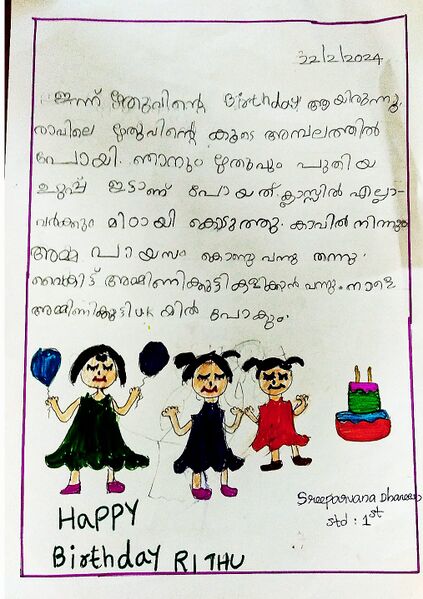 22/2/2024
ഇന്ന് ഋതുവിന്റെ Birthday ആയിരുന്നു.
രാവിലെ ഋതുവിന്റെ കൂടെ അമ്പലത്തിൽ
പോയി. ഞാനും ഋതുവും പുതിയ
ഉടുപ്പ് ഇട്ടാണ് പോയത്. ക്ലാസ്സിൽ എല്ലാ-
വർക്കും മിഠായി കൊടുത്തു. കാവിൽ നിന്നും
അമ്മ പായസം കൊണ്ടു വന്നു തന്നു.
വൈകിട്ട് അമ്മിണിക്കുട്ടി കളിക്കാൻ വന്നു. നാളെ
അമ്മിണിക്കുട്ടി UK യിൽ പോകും.
Sreeparvana Dhaneesh
std : 1st
HAPPY
Birthday RITHU